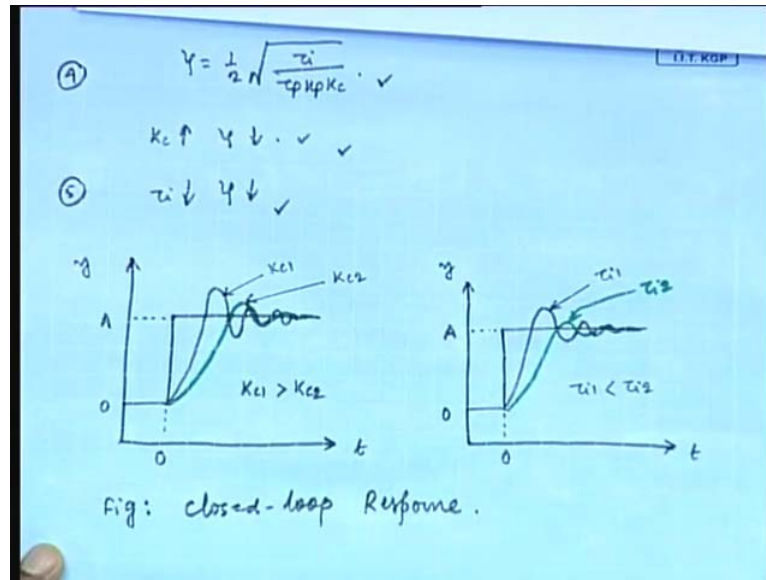 I.I.T. KGP
④ ψ = 1/2 √(τi / τp Kp Kc) . ✓
Kc ↑ ψ ↓ . ✓ ✓
⑤ τi ↓ ψ ↓ ✓
y Kc1 Kc2
A
Kc1 > Kc2
0
0 t
y τi1 τi2
A
τi1 < τi2
0
0 t
Fig: closed-loop Response.